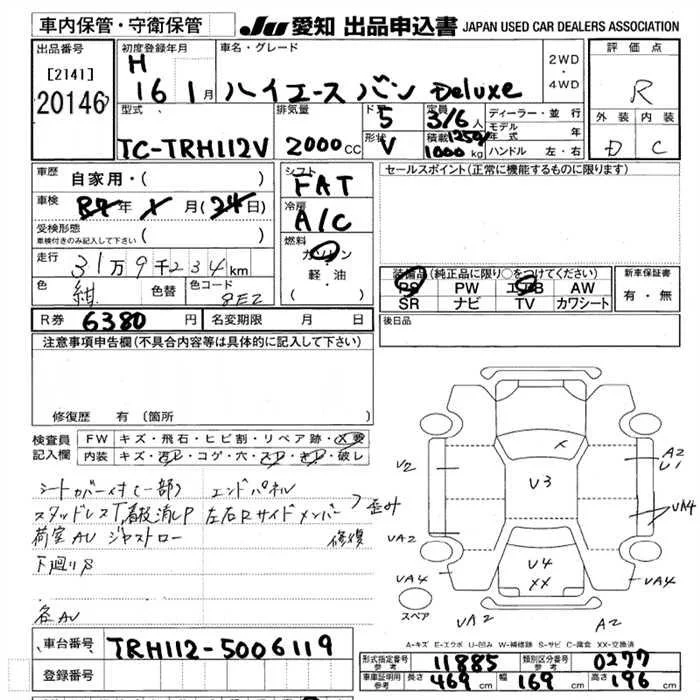 車内保管・守衛保管
JU 愛知 出品申込書 JAPAN USED CAR DEALERS ASSOCIATION
出品番号
[2141]
20146
初度登録年月
H
16 1月
車名・グレード
ハイエース バン Deluxe
2WD
・
4WD
評価点
R
外装 内装
D C
型式
TC-TRH112V
排気量
2000cc
ド 5
形状 V
定員 3/6人
積載 1250/
1000kg
ディーラー・並行
モデル
年式 年
ハンドル 左・右
車歴
自家用・( )
車検
年 月( 24日)
受検形態
車検付きのみ記入して下さい ( )
走行
31万9千234km
色
紺
色替
色コード
8E2
シフト
FAT
冷房
A/C
燃料
ガソリン
・
軽・油
( )
セールスポイント(正常に機能するものに限ります)
装備品(純正品に限り○をつけてください)
PS PW エアB AW
SR ナビ TV カワシート
新車保証書
有・無
R券 6380円
名変期限 月 日
後日品
注意事項申告欄(不具合内容等は具体的に記入して下さい)
修復歴 有 (箇所 )
検査員
記入欄
FW キズ・飛石・ヒビ割・リペア跡・X要
内装 キズ・汚レ・コゲ・穴・スレ・キレ・破レ
シートカバー付(一部) エンドパネル
スタッドレスT, 看板消しP 左右Rサイドメンバー 歪み
荷室AU ジャストロー 修復
下廻りS
各AU
V2
X
A2
U1
V3
UA4
VA2
V4
XX
VA4
VA4
VA2
A2
スペア
A-キズ E-エクボ U-凹み W-補修跡 S-サビ C-腐食 XX-交換済
車台番号 TRH112-5006119
登録番号
形式指定番号
参考
11885
類別区分番号
参考
0277
車庫証明用
参考
長さ 469cm 幅 169cm 高さ 196cm